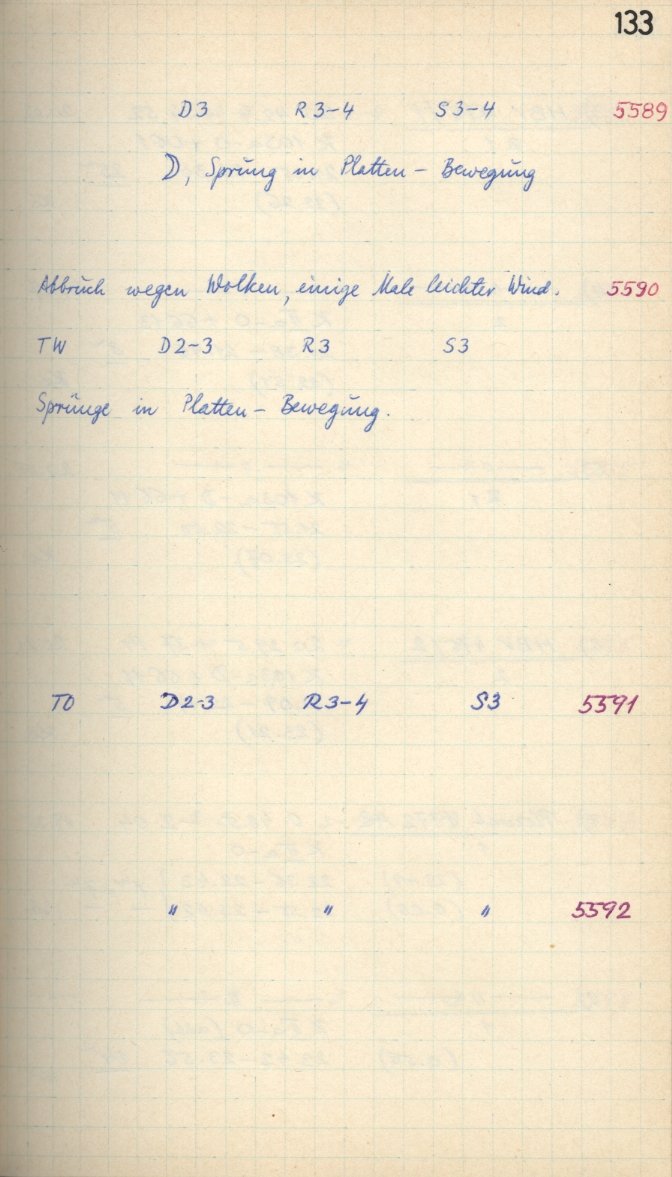 133
D3 R3-4 S3-4 5589
D, Sprung in Platten - Bewegung
Abbruch wegen Wolken, einige Male leichter Wind. 5590
TW D2-3 R3 S3
Sprünge in Platten - Bewegung.
TO D2-3 R3-4 S3 5591
" " " 5592